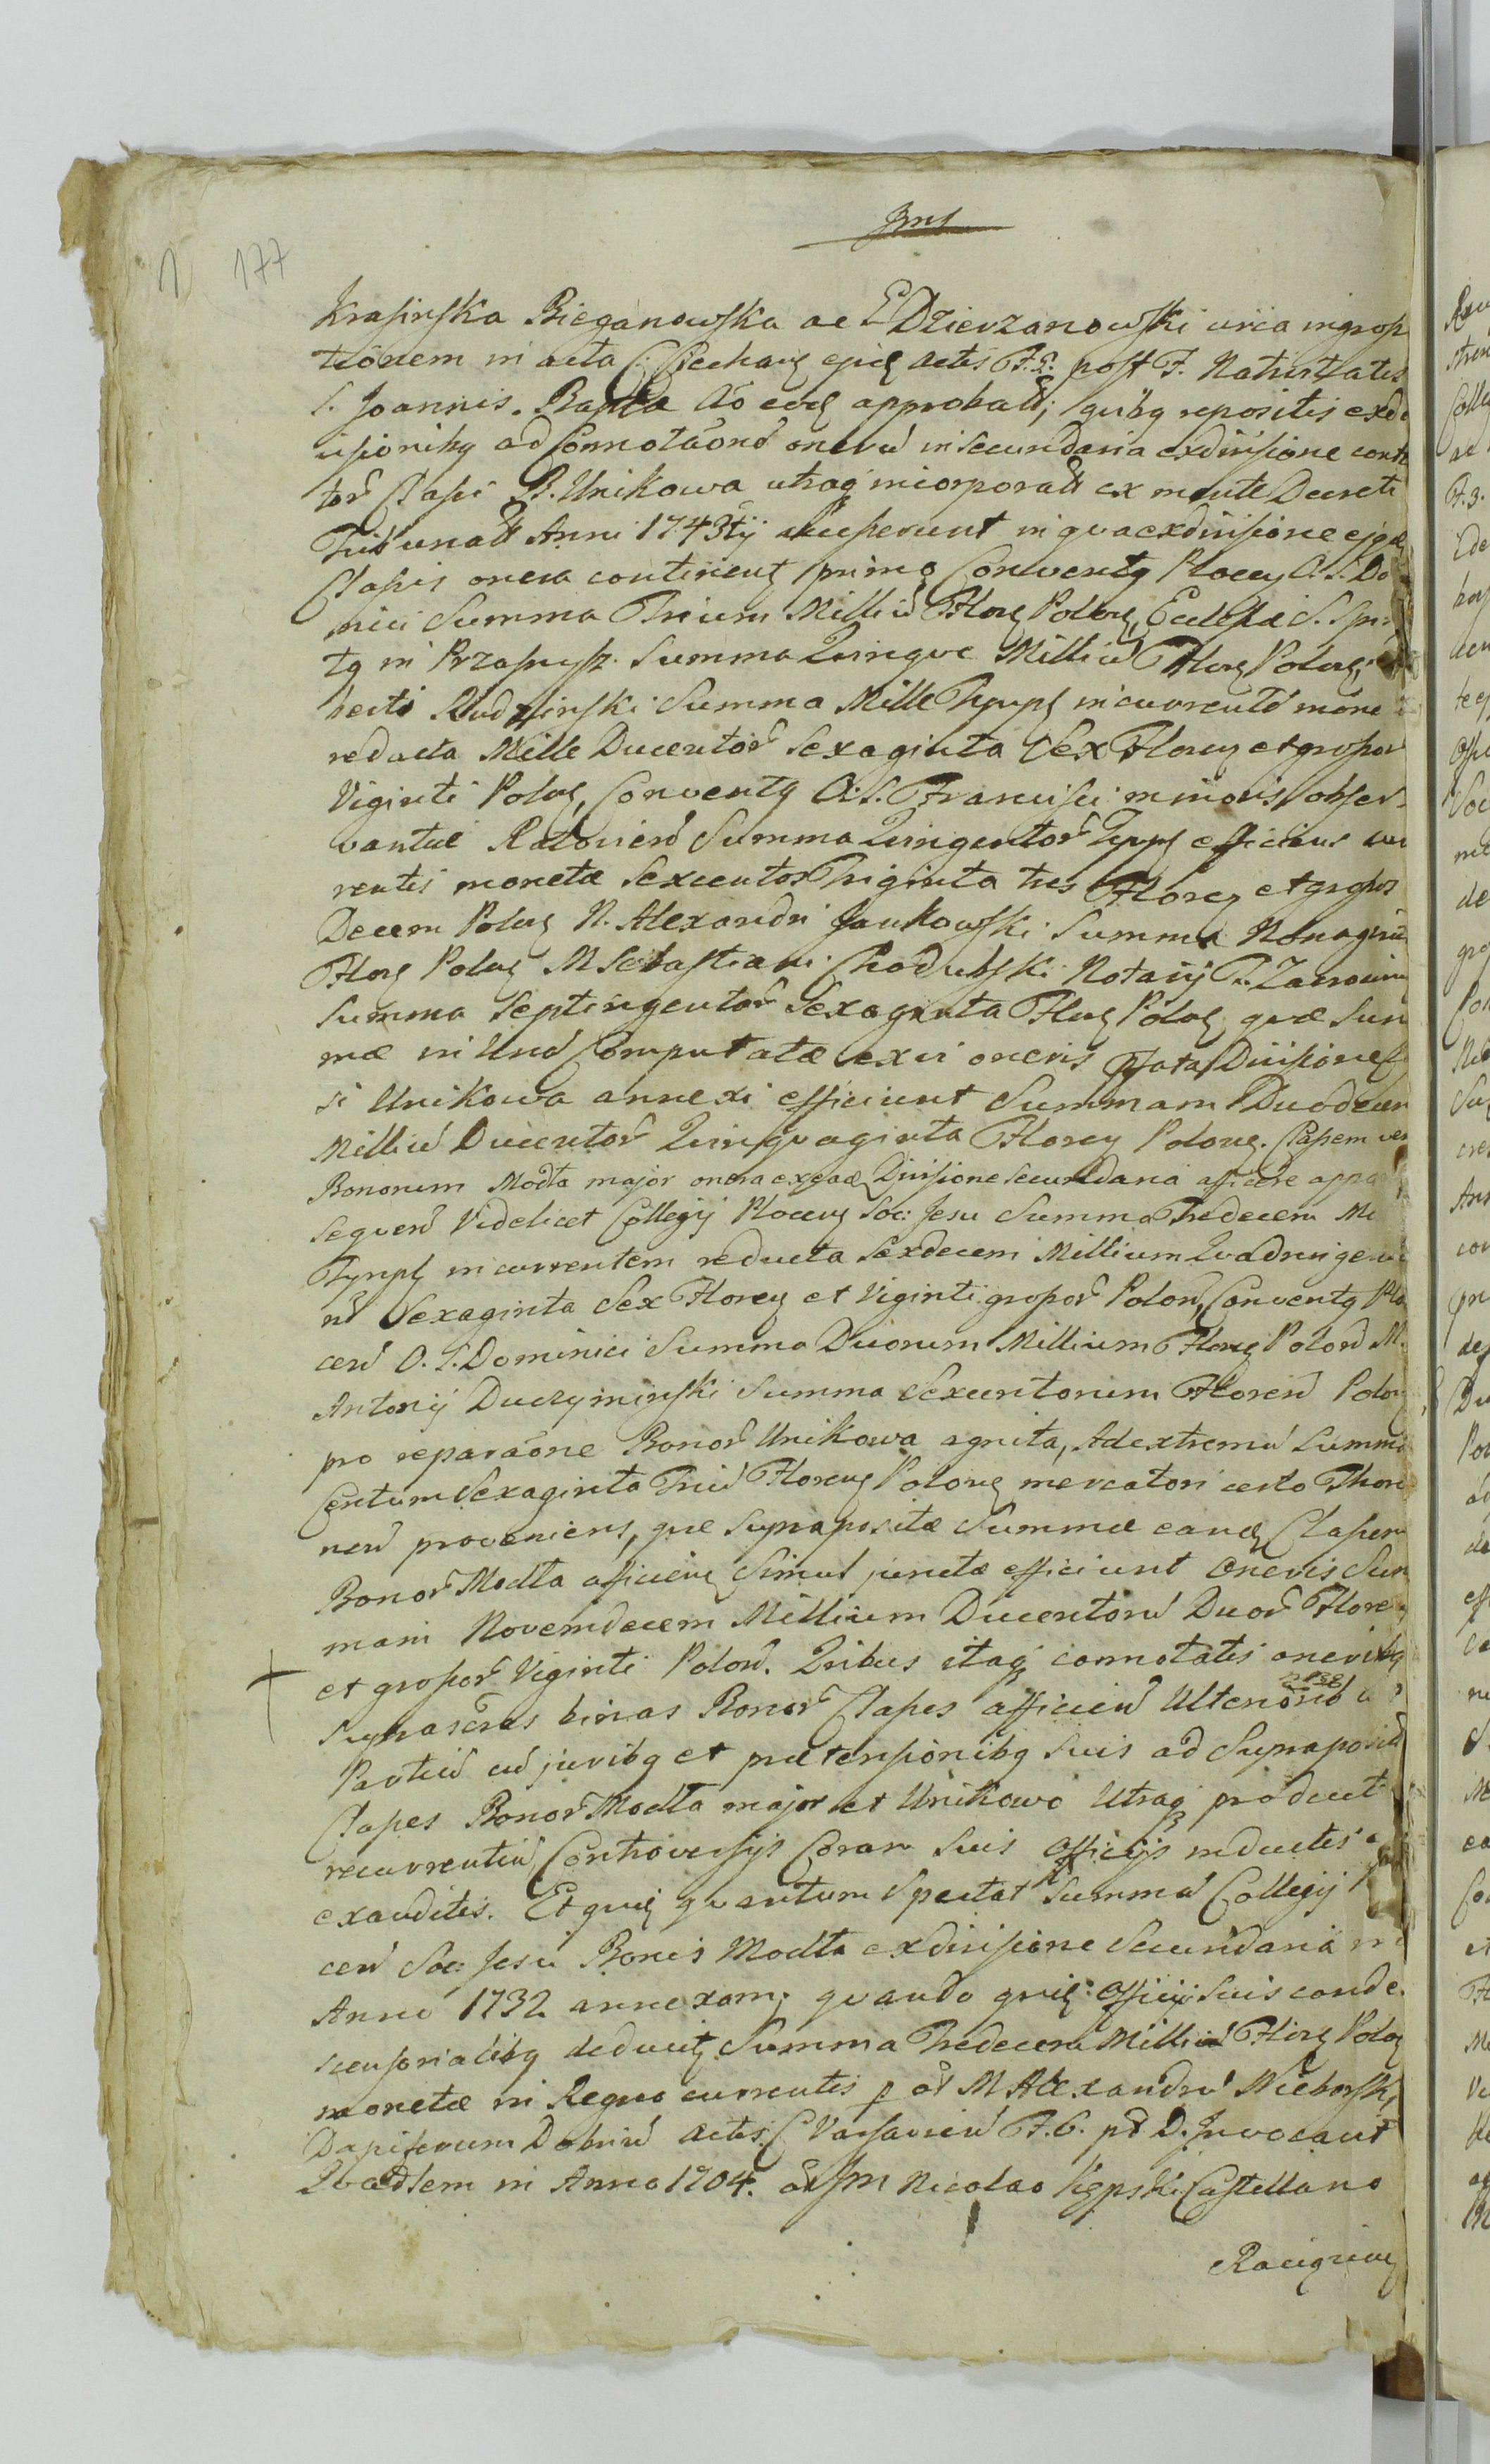 Jms
1 177
Krasinska Bieganowska ac E Dzierzanowski circa ingross
tionem in acta C. Ciechang ejusq actis F. 5. post F. Nativitatis
S. Joannis Baptae Ao eoq approbatt; quibq repositis exdi
visionibq ad Connotaond onerū in secundaria exdivisione conte
tor Classi B. Unikowa utraq incorporatt ex mente Decreti
Tribunatt Anni 1743tij accesserunt in qua exdivisione ejqq
Classis onera continent primo Conventq Plocen O. S. Do
nici Summa Trium Milliū Floreq Poloneq, Ecclesiæ S. Spiri
tq in Przasnysz. Summa Quinque Milliū Floreq Poloneq,
berti Rudzinski Summa Mille Tympf in currentē mone
redacta Mille Ducentor Sexaginta Sex Floreq et grossor
Viginti Poloq, Conventq O. S. Francisci minoris obser-
vantiæ Ratovien Summa Quingentor Tympf efficiens cur
rentis monetæ Sexcentor Triginta tres Floreq et grossor
Decem Poloq N. Alexandri Jankowski Summa Nonagint
Floreq Poloq M Sebastiani Chodubski Notarij T. Zawcrin
Summa Septingentor Sexaginta Floreq Poloq quæ Sum
mæ in Und Computatæ ex vi oneris pfata Divisione C
si Unikowa annexi efficiunt Summam Duodecim
Milliū Ducentor Quinquaginta Floreq Poloneq. Classem ver
Bonorum Modła major onera ex eadq Divisione secundaria afficere appa
sequend Videlicet Collegij Ploceng Soc: Jesu Summa Tredecem Mi
Tympf in currentem reducta Sexdecem Millium Quadringen
rū Sexaginta Sex Floreq et Viginti grossor Polon, Conventq Plo
cen O. S. Dominici Summa Duorum Millium Floreq Polon M.
Antonij Duczyminski Summa Sexcentorum Floren Polon
pro reparaōne Bonor Unikowa agnita, Ad extremū Summa
Centum Sexaginta Triū Floreq Poloneq mercatori certo Thoru
nen proveniens, quæ Supraposita Summæ eandq Classem
Bonor Modła afficienq Simul junctæ efficiunt Oneris Sum
mam Novemdecem Millium Ducentorū Duor Floreq
et grossor Viginti Polon. Quibus itaq connotatis oneribq
Suprascras binas Bonor Classes afficien Ulteriorib
Partiū cū juribq et prætensionibq Suis ad Supraposit
Classes Bonor Modła major et Unikowo Utraq product
recurrentiū Controversijs Coram Suis officijs inductis
exauditis. Et quiq quantum Spectat Summā Collegij
cen Soc: Jesu Bonis Modła exdivisione Secundaria in
Anno 1732 annexam; quando quiq officij Suis conde-
scensorialibq deducitq Summa Tredecem Milliū Floreq Poloq
monetæ in Regno currentis p ol M Alexandrū Nieborski
Dapiferum Dobrin actis C Varsavien F. 6. pt D. Invocavit
Quadlem in Anno 1704. ol Jm Nicolao Kępski Castellano
Raciqnien